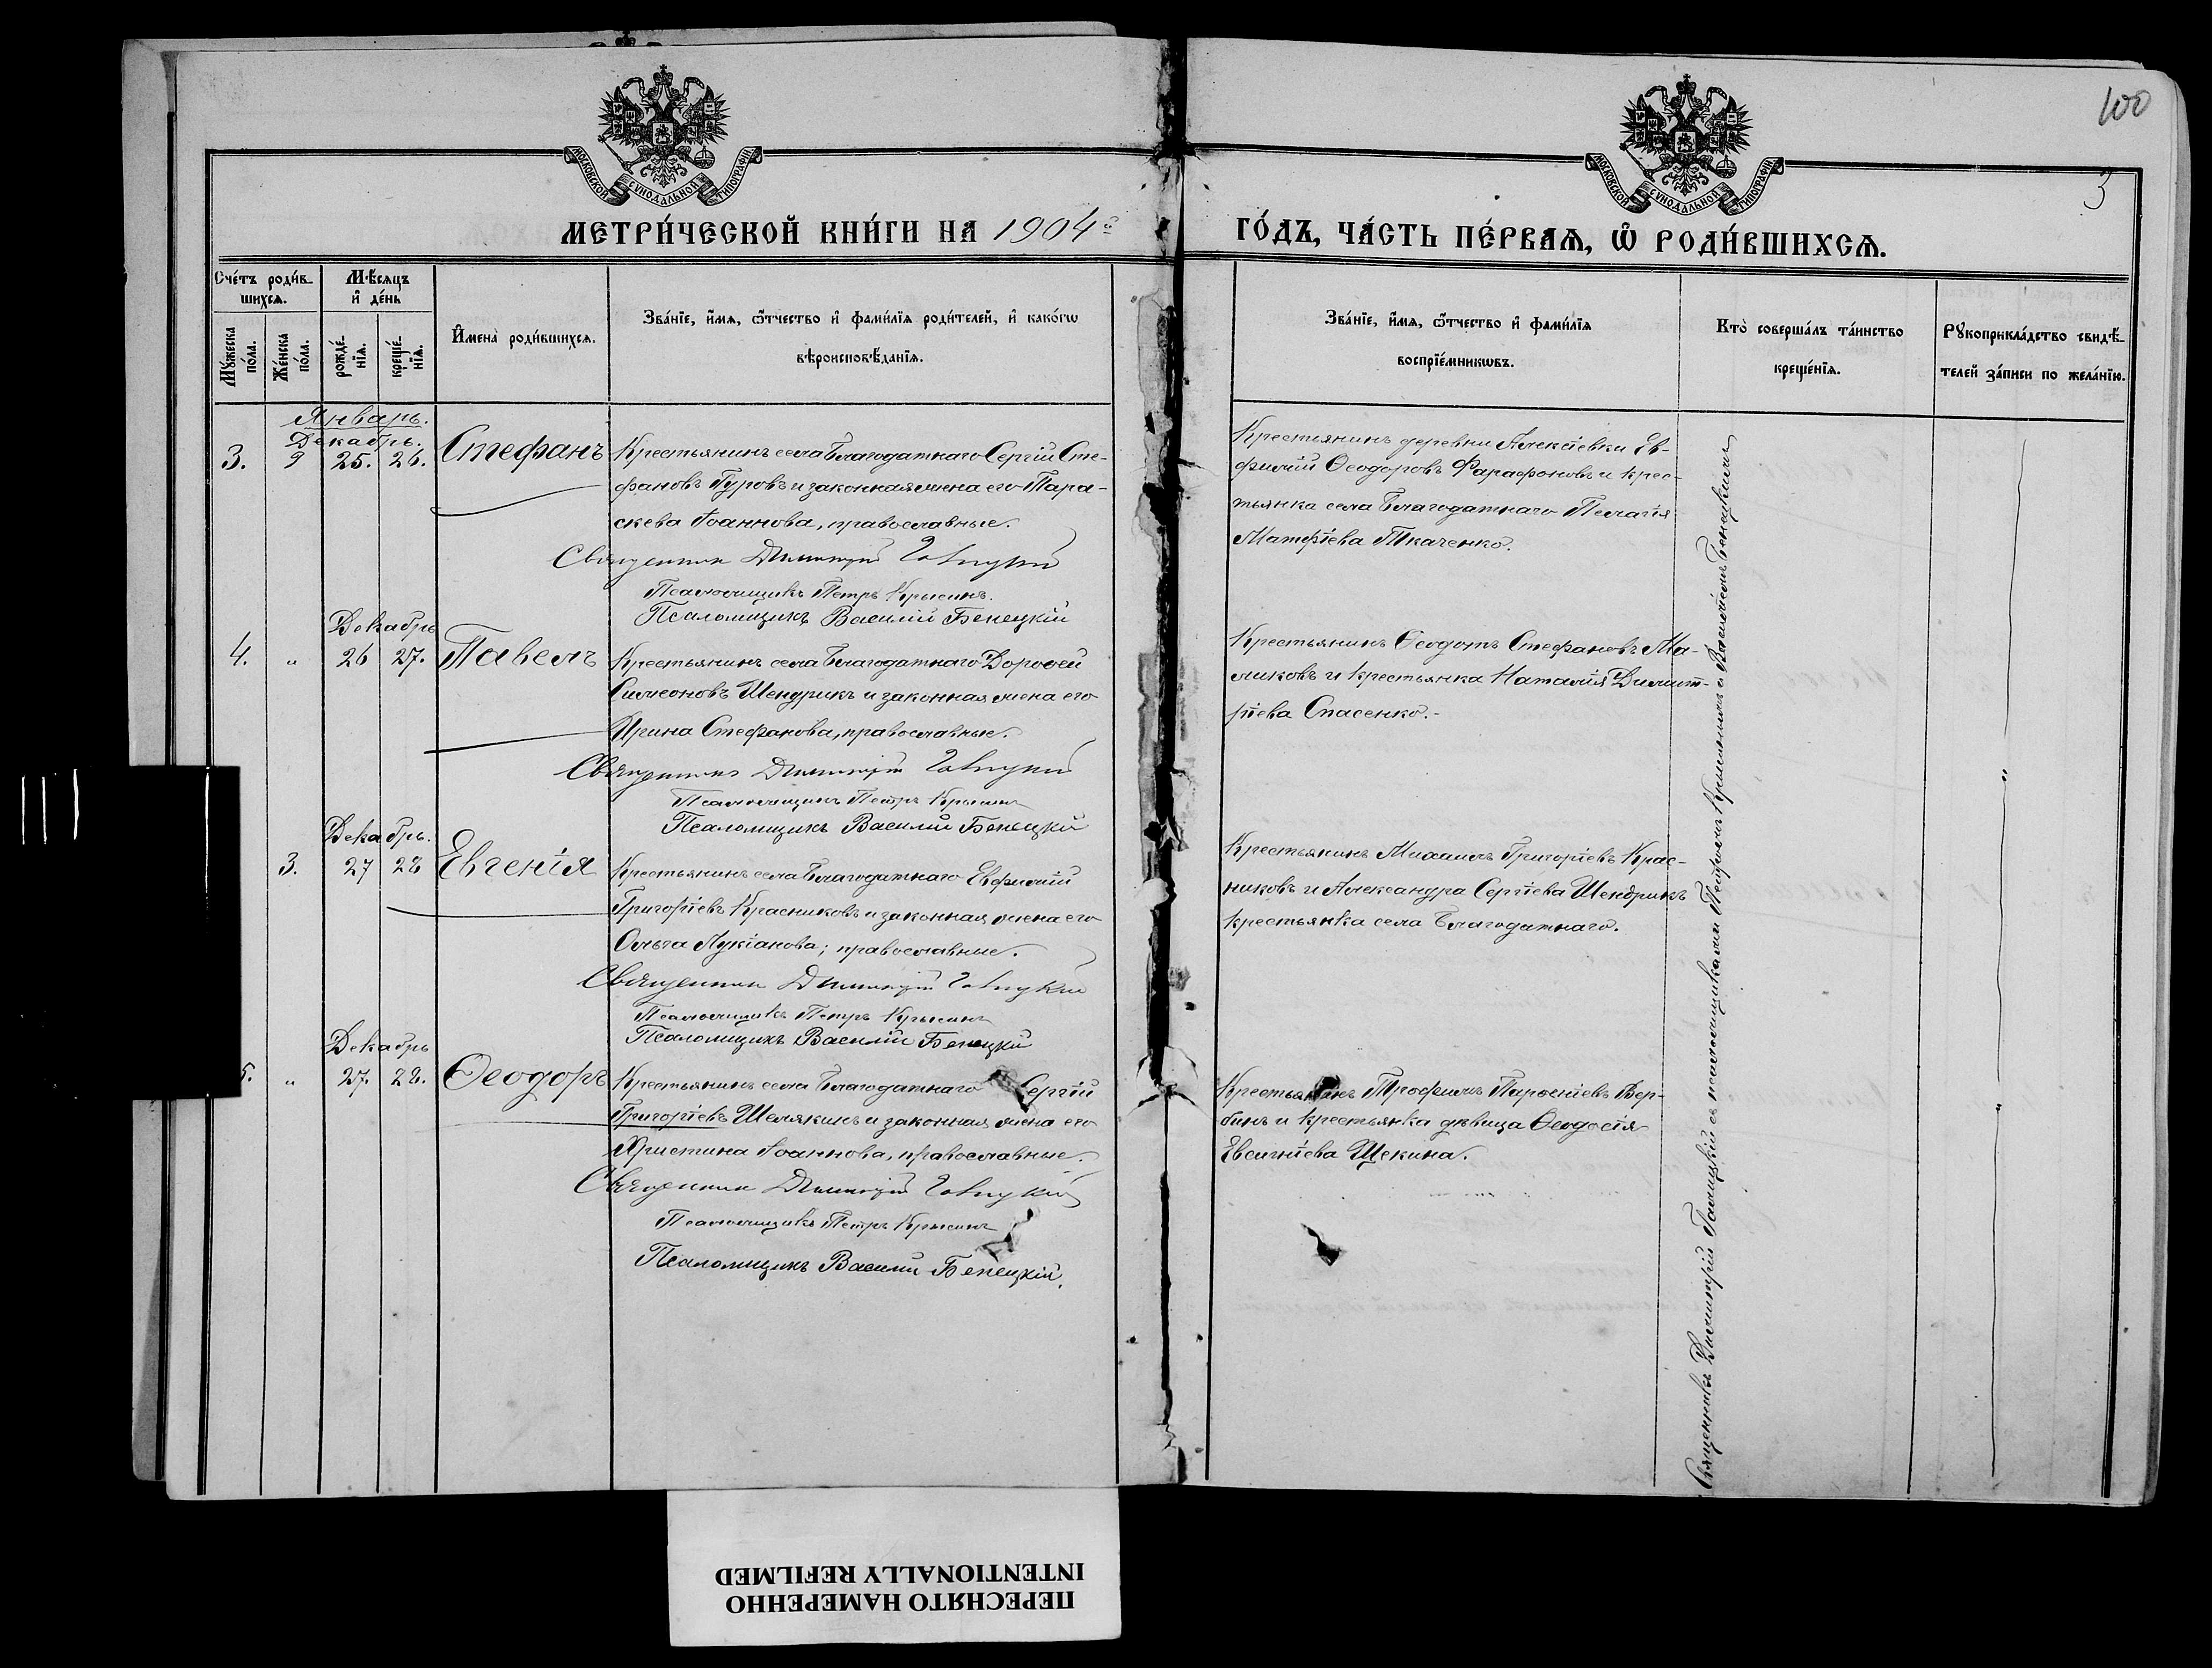 100
3
МОСКОВСКОЙ СѴНОДАЛЬНОЙ ТИПОГРАФІИ
МОСКОВСКОЙ СѴНОДАЛЬНОЙ ТИПОГРАФІИ
МЕТРИ́ЧЕСКОЙ КНИ́ГИ НА 1904 г҃
ГО́ДЪ, ЧА́СТЬ ПЕ́РВАѦ, Ѡ҆ РОДИ́ВШИХСѦ.
Сче́тъ роди́в-
шихсѧ.
Мꙋ́жеска по́ла.
Же́нска по́ла.
Мѣ́сѧцъ
и҆ де́нь
рожде́-нїѧ.
креще́-нїѧ.
И҆мена̀ роди́вшихсѧ.
Зва́нїе, и҆́мѧ, ѻ҆́тчество и҆ фами́лїѧ роди́телей, и҆ како́гѡ
вѣроисповѣ́данїѧ.
Зва́нїе, и҆́мѧ, ѻ҆́тчество и҆ фами́лїѧ
воспрїе́мникѡвъ.
Кто̀ соверша́лъ та́инство
креще́нїѧ.
Рꙋкоприкла́дство свидѣ́-
телей за́писи по жела́нїю.
Январь.
Декабрь.
3. 25. 26. Стефанъ
Крестьянинъ села Благодатнаго Сергій Сте-
фановъ Гуровъ и законная жена его Пара-
скева Іоаннова, православные.
Священник Димитрій Галицкий
Псаломщикъ Петръ Крысинъ.
Псаломщикъ Василій Бенецкій
Крестьянинъ деревни Алексѣевки Ев-
фимій Ѳеодоровъ Фарафоновъ и крес-
тьянка села Благодатнаго Пелагія
Матфіева Ткаченко.
Декабрь
4. " 26 27. Павелъ
Крестьянинъ села Благодатнаго Дороѳей
Симеоновъ Шендрикъ и законная жена его
Ирина Стефанова, православные.
Священник Димитрій Галицкий
Псаломщикъ Петръ Крысинъ
Псаломщикъ Василій Бенецкій
Крестьянинъ Ѳеодотъ Стефановъ Ма-
ликовъ и крестьянка Наталія Димит-
ріева Спасенко.-
Декабрь.
3. 27 28 Евгенія
Крестьянинъ села Благодатнаго Евфимій
Григоріевъ Красниковъ и законная жена его
Ольга Лукіанова; православные.
Священник Димитрій Галицкий
Псаломщикъ Петръ Крысинъ
Псаломщикъ Василій Бенецкій
Крестьянинъ Михаилъ Григоріевъ Крас-
никовъ и Александра Сергіева Шендрикъ
крестьянка села Благодатнаго.
Декабрь
5. " 27. 28. Ѳеодоръ
Крестьянинъ села Благодатнаго Сергій
Григоріевъ Шелякинъ и законная жена его
Христина Іоаннова, православные.
Священник Димитрій Галицкий
Псаломщикъ Петръ Крысинъ
Псаломщикъ Василій Бенецкій.
Крестьянинъ Трофимъ Парѳеніевъ Вер-
бинъ и крестьянка дѣвица Ѳеодосія
Евсигніева Щекина.
Священникъ Димитрій Галицкій съ псаломщиками Петромъ Крысинымъ и Василіемъ Бенецкимъ
ПЕРЕСНЯТО НАМЕРЕННО
INTENTIONALLY REFILMED